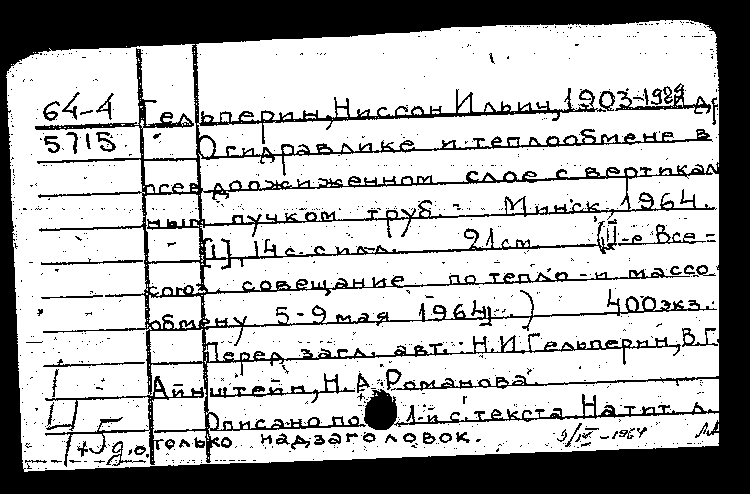 64-4 Гельперин, Ниссон Ильич, 1903-1989 и др
5715 О гидравлике и теплообмене в
псевдоожиженном слое с вертикал
ным пучком труб. - Минск, 1964.
- [1], 14 с. с илл. 21 см. (II-е Все-
союз. совещание по тепло- и массо
обмену 5-9 мая 1964 г.) 400 экз.
Перед загл. авт.: Н.И. Гельперин, В.Г.
Айнштейн, Н.А. Романова.
Описано по 1-й с. текста. На тит. л.
4/+5д.о. только надзаголовок. 3/IV-1964